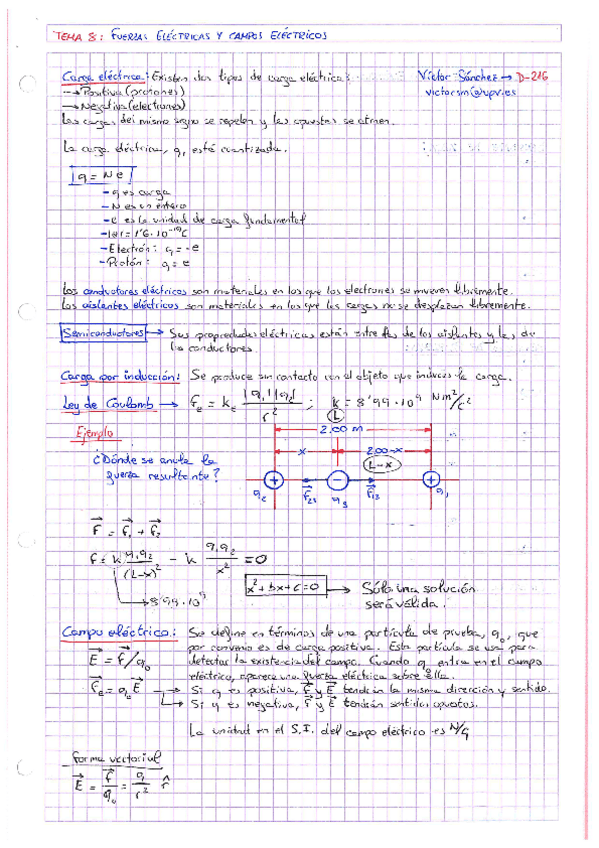 TEMA 8: FUERZAS ELÉCTRICAS Y CAMPOS ELÉCTRICOS
Carga eléctrica: Existen dos tipos de carga eléctrica: Víctor Sánchez → D-216
→ Positiva (protones) victorsm@upv.es
→ Negativa (electrones)
Las cargas del mismo signo se repelen y las opuestas se atraen.
La carga eléctrica, q, está cuantizada.
q = Ne
- q es carga
- N es un entero
- e es la unidad de carga fundamental
- |e| = 1'6·10⁻¹⁹C
- Electrón: q = -e
- Protón: q = e
Los conductores eléctricos son materiales en los que los electrones se mueven libremente.
Los aislantes eléctricos son materiales en los que las cargas no se desplazan libremente.
Semiconductores → Sus propiedades eléctricas están entre las de los aislantes y las de
los conductores.
Carga por inducción: Se produce sin contacto con el objeto que induce la carga.
Ley de Coulomb → Fe = ke |q₁||q₂| / r² ; k = 8'99·10⁹ Nm²/C²
Ejemplo
L
2.00 m
x 2.00-x
¿Dónde se anula la L-x
fuerza resultante?
+ - +
q₂ F₂₃ q₃ F₁₃ q₁
F = F₁ + F₂
F = k q₁q₂ / (L-x)² - k q₁q₂ / x² = 0
8'99·10⁹
x² + bx + c = 0 → Sólo una solución
será válida.
Campo eléctrico: Se define en términos de una partícula de prueba, q₀, que
por convenio es de carga positiva. Esta partícula se usa para
E = F/q₀ detectar la existencia del campo. Cuando q₀ entra en el campo
eléctrico, aparece una fuerza eléctrica sobre ella.
Fe = q₀E → Si q es positiva, F y E tendrán la misma dirección y sentido.
→ Si q es negativa, F y E tendrán sentidos opuestos.
La unidad en el S.I. del campo eléctrico es N/q
Forma vectorial
E = F / q₀ = q / r² r̂